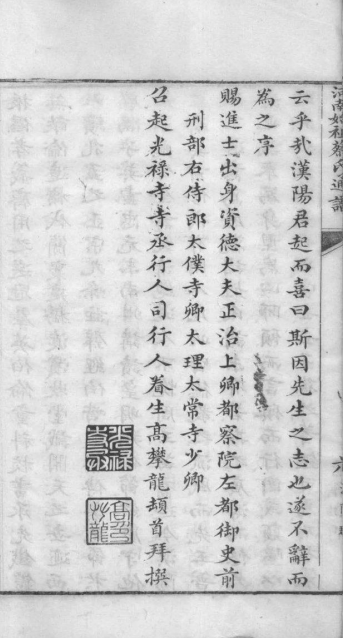 云乎哉漢陽君起而喜曰斯固先生之志也遂不辭而
為之序
賜進士出身資德大夫正治上卿都察院左都御史前
刑部右侍郎太僕寺卿大理太常寺少卿
召起光祿寺寺丞行人司行人眷生高攀龍頓首拜撰